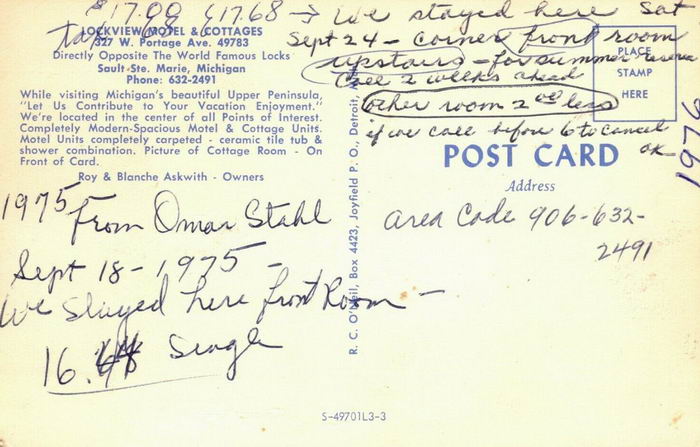 $17.00 $17.68 → We stayed here Sat
tax .68
Sept 24 - corner front room
upstairs - for summer reserve
Call 2 weeks ahead
other room 2.00 less
if we call before 6 to cancel
OK
1976
LOCKVIEW MOTEL & COTTAGES
327 W. Portage Ave. 49783
Directly Opposite The World Famous Locks
Sault-Ste. Marie, Michigan
Phone: 632-2491
While visiting Michigan's beautiful Upper Peninsula,
"Let Us Contribute to Your Vacation Enjoyment."
We're located in the center of all Points of Interest.
Completely Modern-Spacious Motel & Cottage Units.
Motel Units completely carpeted - ceramic tile tub &
shower combination. Picture of Cottage Room - On
Front of Card.
Roy & Blanche Askwith - Owners
1975
From Omar Stahl
Sept 18 - 1975 -
We stayed here front Room -
16.
R. C. O'Neil, Box 4423, Joyfield P. O., Detroit, M
PLACE
STAMP
HERE
POST CARD
Address
area Code 906-632-
2491
S-49701L3-3